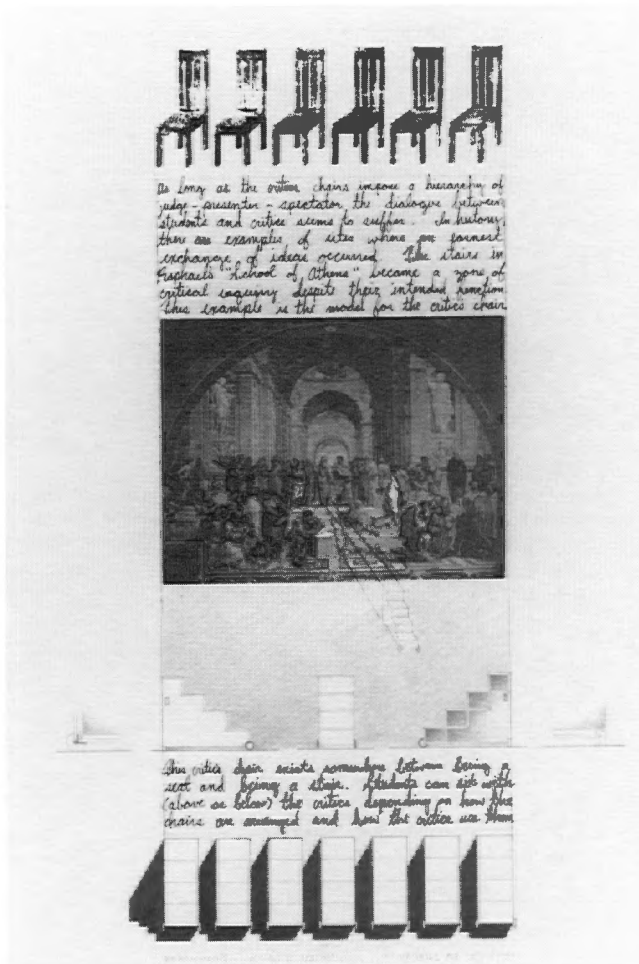 As long as the critics chairs impose a hierarchy of
judge - presenter - spectator the dialogue between
students and critics seems to suffer. In history
there are examples of sites where an earnest
exchange of ideas occurred. The stairs in
Raphaels "School of Athens" became a zone of
critical inquiry despite their intended function
this example is the model for the critics chair
This critics chair exists somewhere between being a
seat and being a stair. Students can sit with
(above or below) the critics depending on how the
chairs are arranged and how the critics use them